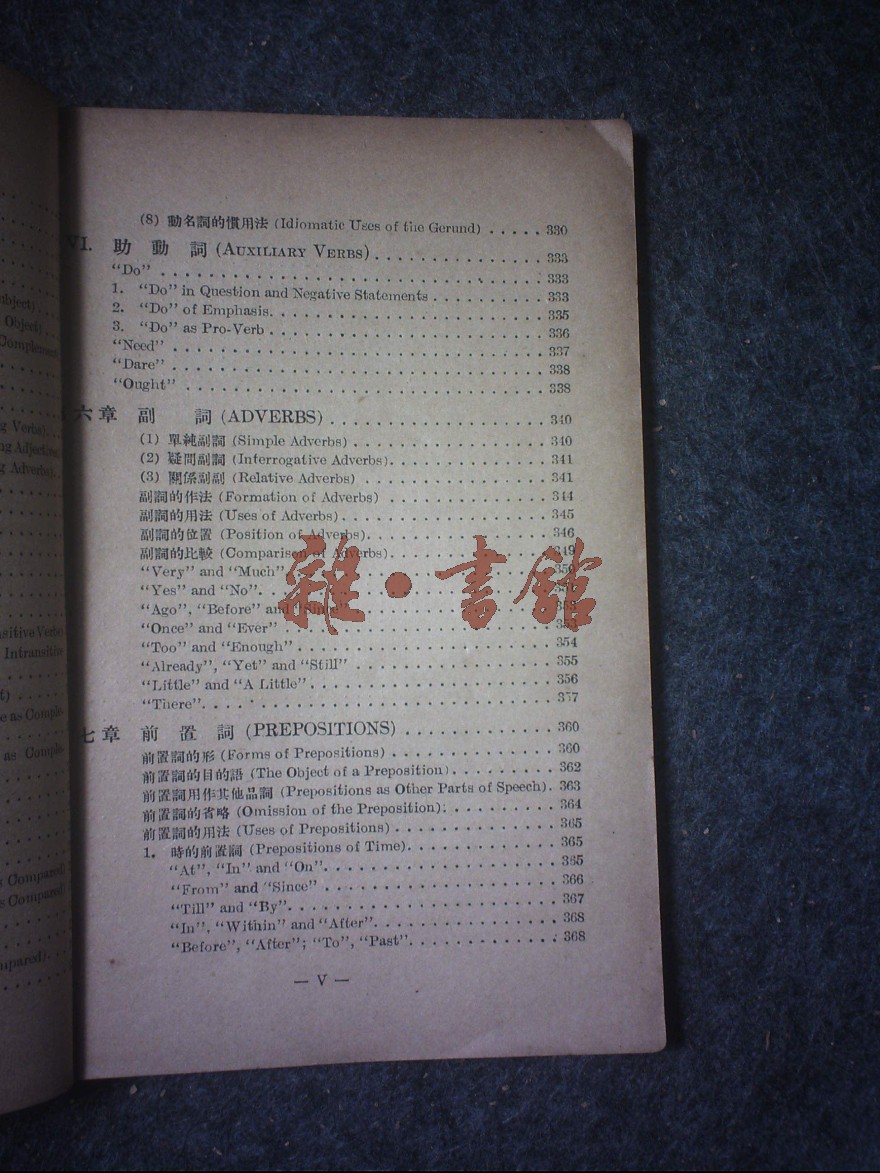 (8) 動名詞的慣用法 (Idiomatic Uses of the Gerund) ..... 330
VI. 助動詞 (AUXILIARY VERBS) ................ 333
“Do” ................ 333
1. “Do” in Question and Negative Statements ........... 333
2. “Do” of Emphasis ................ 335
3. “Do” as Pro-Verb ................ 336
“Need” ................ 337
“Dare” ................ 338
“Ought” ................ 338
六章 副詞 (ADVERBS) ................ 340
(1) 單純副詞 (Simple Adverbs) ................ 340
(2) 疑問副詞 (Interrogative Adverbs) ................ 341
(3) 關係副副 (Relative Adverbs) ................ 341
副詞的作法 (Formation of Adverbs) ................ 344
副詞的用法 (Uses of Adverbs) ................ 345
副詞的位置 (Position of Adverbs) ................ 346
副詞的比較 (Comparison of Adverbs) ................ 349
“Very” and “Much” ................ 350
“Yes” and “No” ................
“Ago”, “Before” and “Since” ................
“Once” and “Ever” ................ 353
“Too” and “Enough” ................ 354
“Already”, “Yet” and “Still” ................ 355
“Little” and “A Little” ................ 356
“There” ................ 357
七章 前置詞 (PREPOSITIONS) ................ 360
前置詞的形 (Forms of Prepositions) ................ 360
前置詞的目的語 (The Object of a Preposition) .......... 362
前置詞用作其他品詞 (Prepositions as Other Parts of Speech). 363
前置詞的省略 (Omission of the Preposition) ........... 364
前置詞的用法 (Uses of Prepositions) ................ 365
1. 時的前置詞 (Prepositions of Time) ................ 365
“At”, “In” and “On” ................ 365
“From” and “Since” ................ 366
“Till” and “By” ................ 367
“In”, “Within” and “After” ................ 368
“Before”, “After”; “To”, “Past” ................ 368
— V —
雜·書館